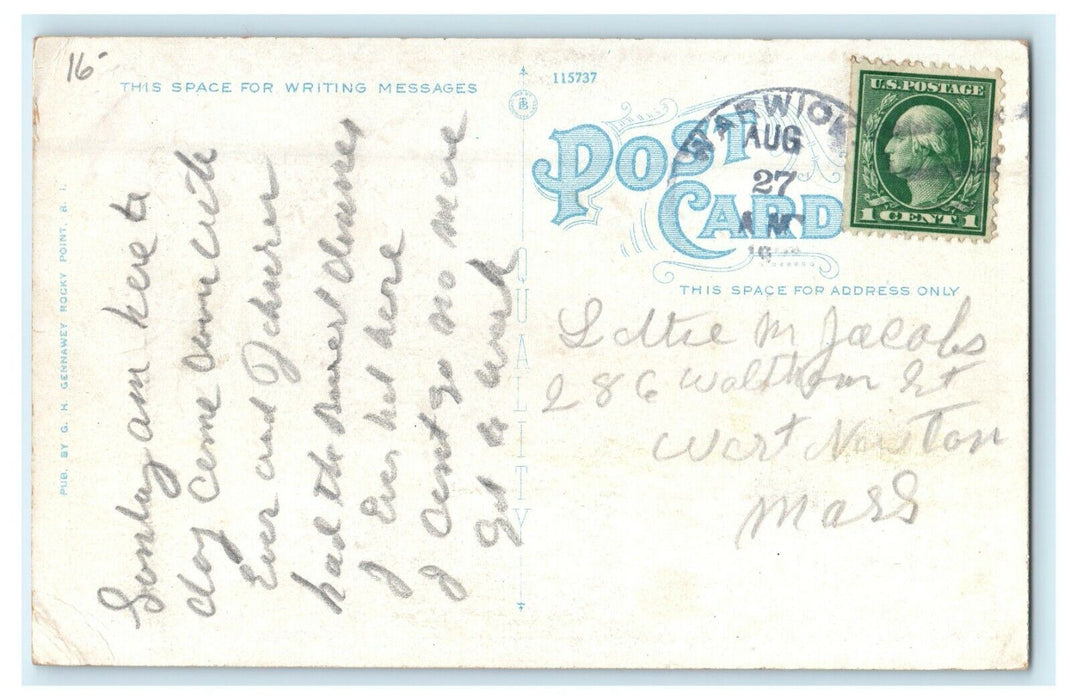 16-
THIS SPACE FOR WRITING MESSAGES
PUB. BY G. H. GENNAWEY ROCKY POINT, R. I.
Sunday am here to
day Came down with
Ever and
had the dinner
I Ever had here
I Cant go no more
Got to work
115737
POST CARD
QUALITY
THIS SPACE FOR ADDRESS ONLY
WARWICK
AUG
27
AM
U.S. POSTAGE
1 CENT 1
Lottie M Jacobs
286 Waltham St
West Newton
Mass